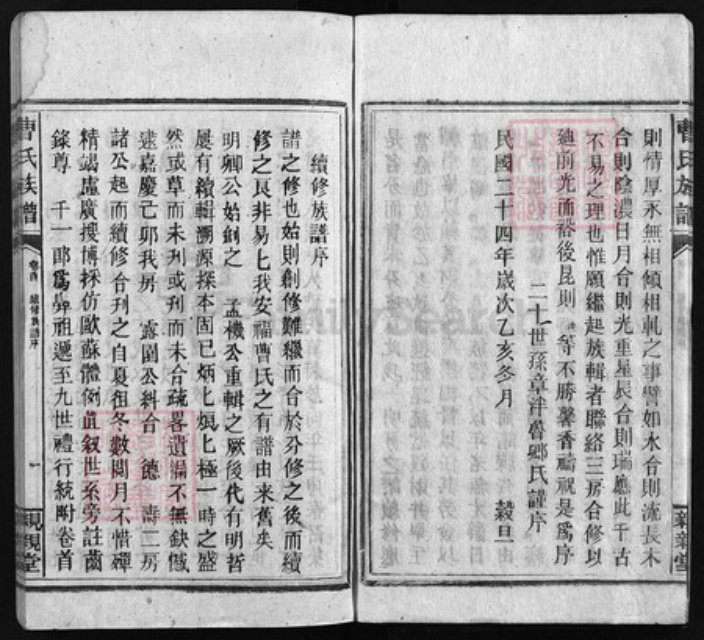 則情厚永無相傾相軋之事譬如水合則流長木
合則陰濃日月合則光重星辰合則瑞應此千古
不易之理也惟願繼起族輯者聯絡三房合修以
廸前光而裕後昆則 等不勝馨香禱祝是爲序
二十世孫章泮 鄉氏謹序
民國二十四年歲次乙亥冬月 穀旦
曹氏族譜
續修族譜序
譜之修也始則創修難繼而合於分修之後而續
修之艮非易匕我安福曹氏之有譜由來舊矣
明卿公始創之 孟機公重輯之厥後代有明哲
屢有續輯溯源探本固已炳匕烺匕極一時之盛
然或草而未刋或刋而未合疏畧遺漏不無缺憾
逮嘉慶己卯我房 露園公料合 德 壽二房
諸公起而續修合刋之自夏徂冬數閱月不惜殫
精竭慮廣搜博採仿歐蘇體例直叙世系旁註齒
錄尊 千一郎爲 祖遞至九世禮行統附卷首
曹氏族譜
卷首 續修族譜序
一
親親堂